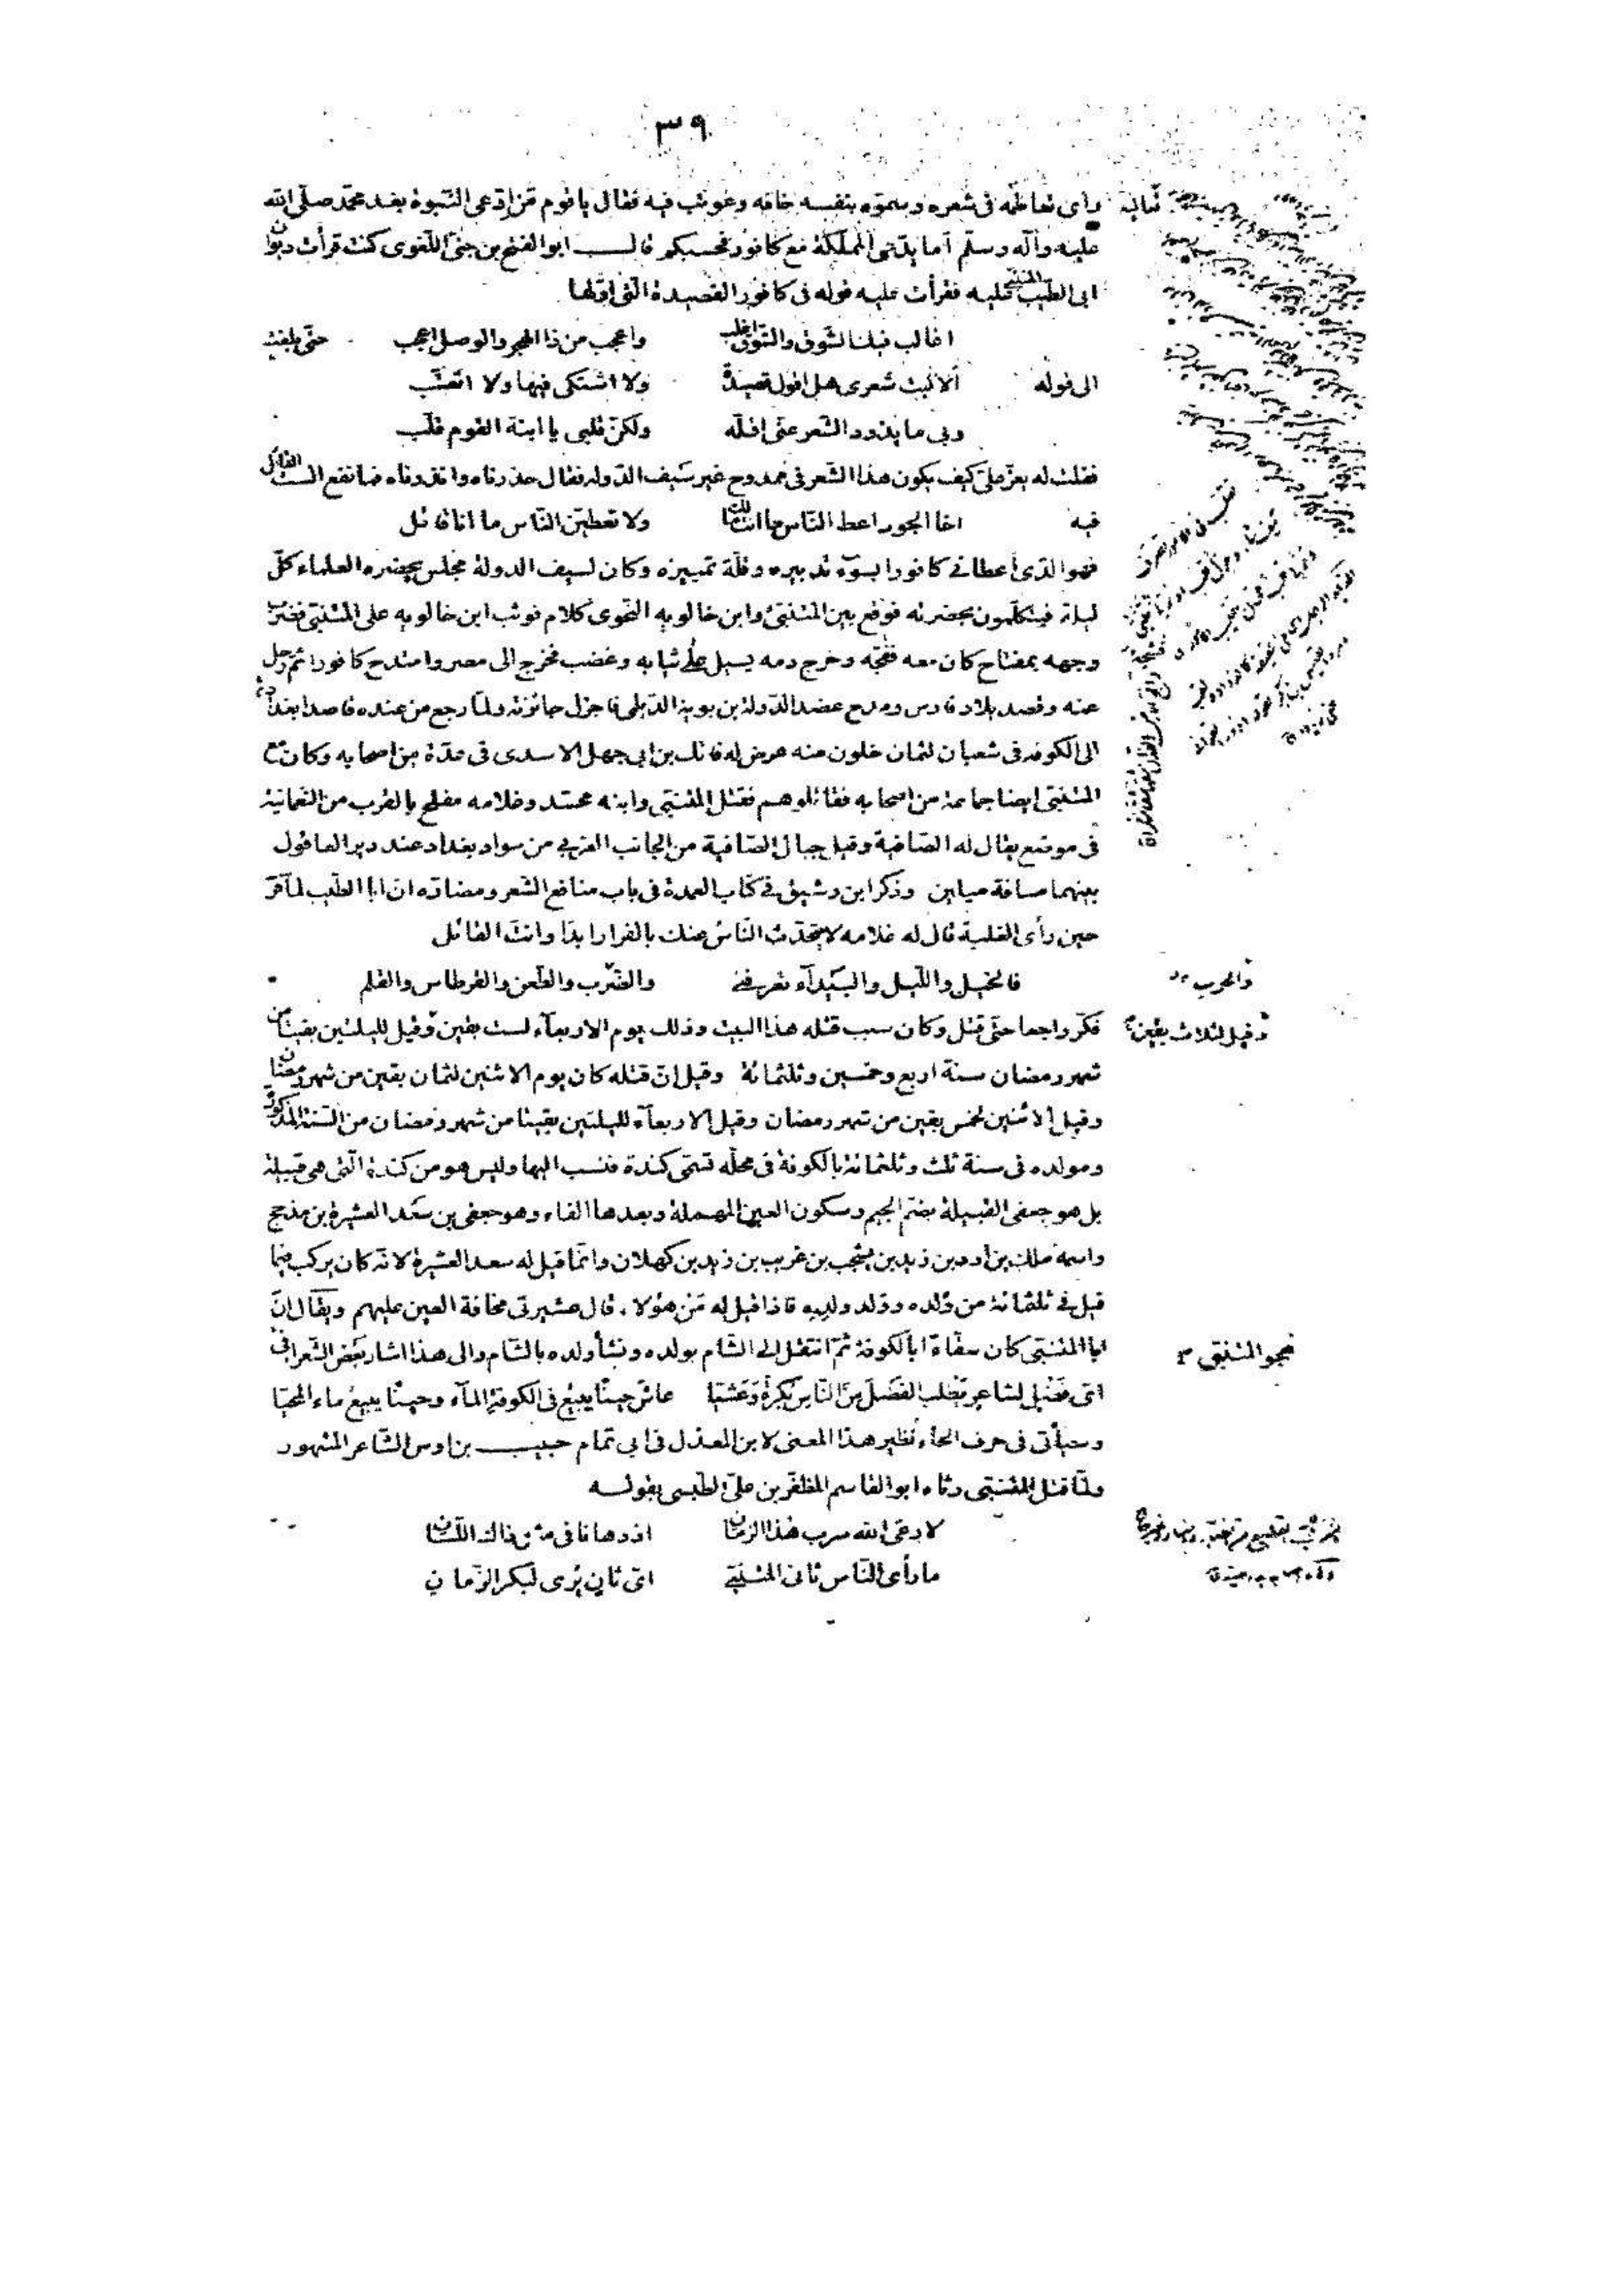 ٣٩
رأى تعاظمه فى شعره وسموّه بنفسه خافه وعوتب فيه فقال يا قوم من ادّعى النّبوة بعد محمّد صلّى الله
عليه وآله وسلّم أما يدّعى المملكة مع كافور فحسبكم قال ابو الفتح بن جنى اللّغوى كنت قرأت ديوان
ابى الطيّب المتنبّى عليه فقرأت عليه قوله فى كافور القصيدة الّتى اوّلها
اغالب فيك الشّوق والشّوق اغلب واعجب من ذا الهجر والوصل اعجب حتّى بلغت
الى قوله ألا ليت شعرى هل اقول قصيدة ولا اشتكى فيها ولا اتعتّب
وبى ما يذود الشّعر عنّى اقلّه ولكنّ قلبى يا ابنة القوم قلّب
فقلت له يعزّ علىّ كيف يكون هذا الشّعر فى ممدوح غير سيف الدّولة فقال حذرناه وانذرناه فما نفع الست القائل
فيه اخا الجود اعط النّاس ما انت مالك ولا تعطينّ النّاس ما انا قائل
فهو الّذى أعطانى كافورا بسوء تدبيره وقلّة تمييزه وكان لسيف الدولة مجلس يحضره العلماء كلّ
ليلة فيتكلّمون بحضرته فوقع بين المتنبّى وابن خالويه النّحوى كلام فوثب ابن خالويه على المتنبّى فضرب
وجهه بمفتاح كان معه فشجّه وخرج دمه يسيل على ثيابه وغضب فخرج الى مصر وامتدح كافورا ثمّ رحل
عنه وقصد بلاد فارس ومدح عضد الدّولة بن بويه الدّيلمى فاجزل جائزته ولمّا رجع من عنده قاصدا بغداد ثمّ
الى الكوفة فى شعبان لثمان خلون منه عرض له فاتك بن ابى جهل الاسدى فى عدّة من اصحابه وكان مع
المتنبّى ايضا جماعة من اصحابه فقاتلوهم فقتل المتنبّى وابنه محسّد وغلامه مفلح بالقرب من النّعمانيّة
فى موضع يقال له الصّافية وقيل جبال الصّافية من الجانب الغربى من سواد بغداد عند دير العاقول
بينهما مسافة ميلين وذكر ابن رشيق فى كتاب العمدة فى باب منافع الشّعر ومضارّه انّ ابا الطّيب لمّا فرّ
حين رأى الغلبة قال له غلامه لا يتحدّث النّاس عنك بالفرار ابدا وانت القائل
فالخيل واللّيل والبيداء تعرفنى والضّرب والطّعن والقرطاس والقلم
والحرب
فكرّ راجعا حتّى قتل وكان سبب قتله هذا البيت وذلك يوم الاربعاء لست بقين وقيل لليلتين بقيتا من
وقيل لثلاث بقين
شهر رمضان سنة اربع وخمسين وثلثمائة وقيل انّ قتله كان يوم الاثنين لثمان بقين من شهر رمضان
وقيل الاثنين لخمس بقين من شهر رمضان وقيل الاربعاء لليلتين بقيتا من شهر رمضان من السّنة المذكورة
ومولده فى سنة ثلث وثلثمائة بالكوفة فى محلّة تسمّى كندة فنسب اليها وليس هو من كندة الّتى هى قبيلة
بل هو جعفى القبيلة بضمّ الجيم وسكون العين المهملة وبعدها الفاء وهو جعفى بن سعد العشيرة بن مذحج
واسمه ملك بن ادد بن زيد بن يشجب بن عريب بن زيد بن كهلان وانّما قيل له سعد العشيرة لانّه كان يركب فيما
قيل فى ثلثمائة من ولده وولد ولده فاذا قيل له من هؤلاء قال عشيرتى مخافة العين عليهم ويقال انّ
ابا المتنبّى كان سقّاء بالكوفة ثمّ انتقل الى الشّام بولده ونشأ ولده بالشّام والى هذا اشار بعض الشّعراء فى
هجو المتنبّى
اىّ فضل لشاعر يطلب الفضل من النّاس بكرة وعشيّا عاش حينا يبيع فى الكوفة الماء وحينا يبيع ماء المحيّا
وسيأتى فى حرف الحاء نظير هذا المعنى لابن المعذل فى ابى تمام حبيب بن اوس الشّاعر المشهور
ولمّا قتل المتنبّى رثاه ابو القاسم المظفّر بن علىّ الطّبسى بقوله
لا رعى الله سرب هذا الزّمان اذ دهانا فى مثل ذاك اللّسان
ما رأى النّاس ثانى المتنبّى اىّ ثان يرى لبكر الزّمان